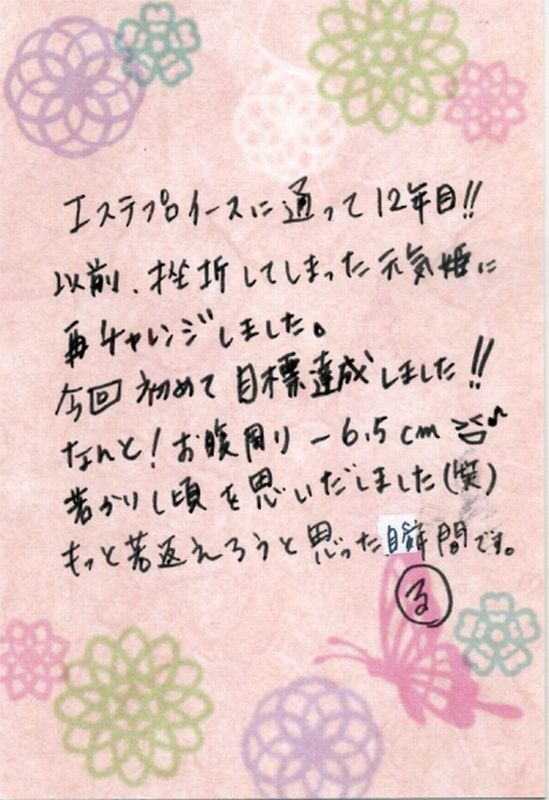 エステプロイースに通って12年目!!
以前、挫折してしまった元気姫に
再チャレンジしました。
今回初めて目標達成しました!!
なんと!お腹周り-6.5cm≧≦♪
若かりし頃を思いだしました(笑)
もっと若返えろうと思った瞬間です。
る